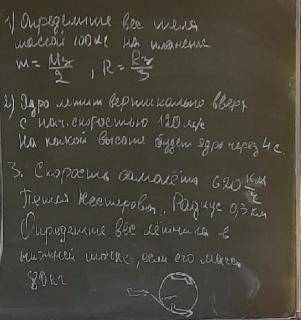 1) Определите вес тела
массой 100кг на планете
m = Mз/2 , R = Rз/3
2) Ядро летит вертикально вверх
с нач. скоростью 120 м/с
На какой высоте будет ядро через 4 с.
3. Скорость самолёта 620 км/ч
Петля Нестерова, Радиус 0,3 км
Определите вес лётчика в
нижней точке, если его масса
80 кг